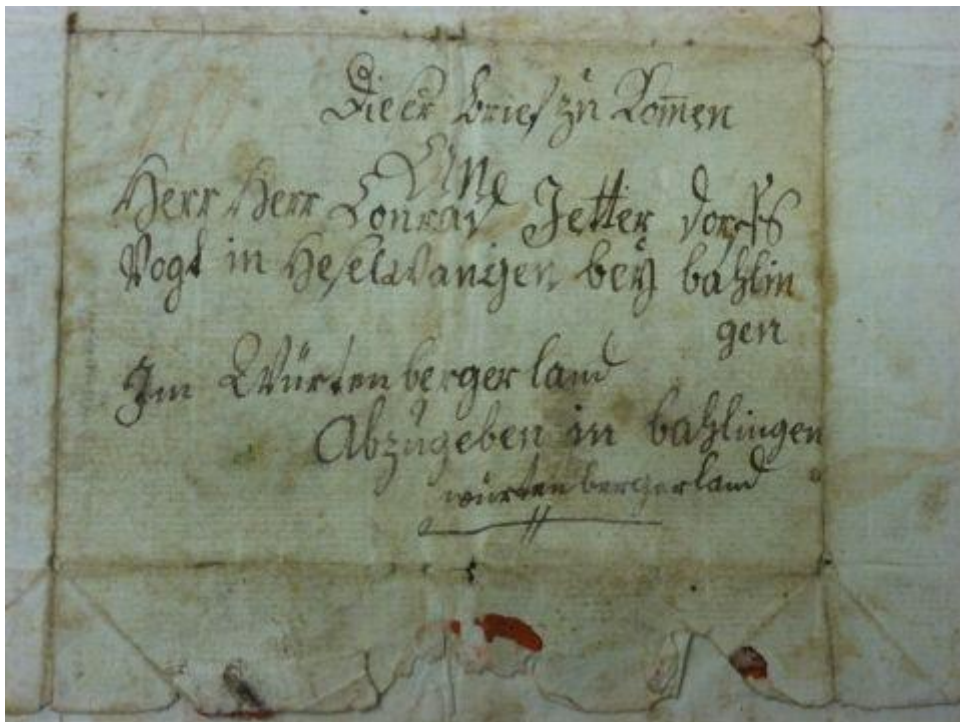 Dieer brief zu Komen
An
Herr Herr Conrad Jetter dorffs
Vogt in Heselwangen beÿ bahlin
gen
Im Würtenbergerland
Abzugeben in bahlingen
würtenbergerland